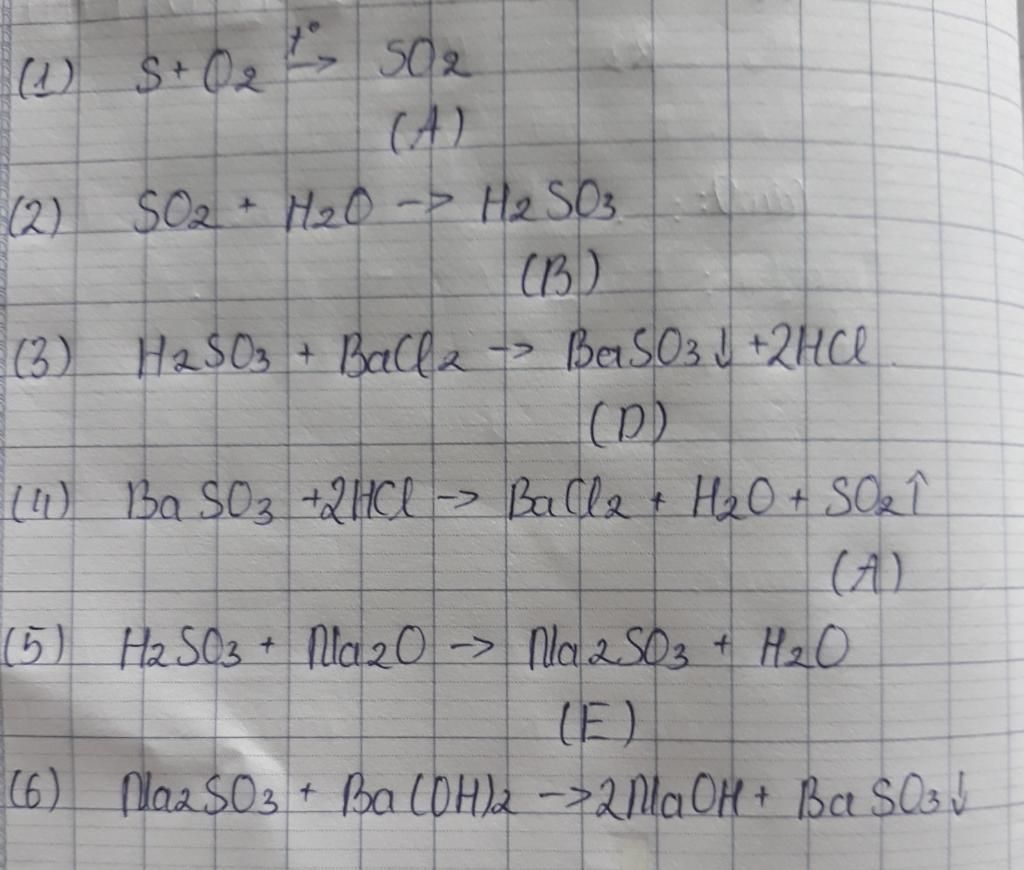 (1) S + O2 t°→ SO2
(A)
(2) SO2 + H2O → H2SO3
(B)
(3) H2SO3 + BaCl2 → BaSO3↓ +2HCl
(D)
(4) BaSO3 +2HCl → BaCl2 + H2O + SO2↑
(A)
(5) H2SO3 + Na2O → Na2SO3 + H2O
(E)
(6) Na2SO3 + Ba(OH)2 → 2NaOH + BaSO3↓